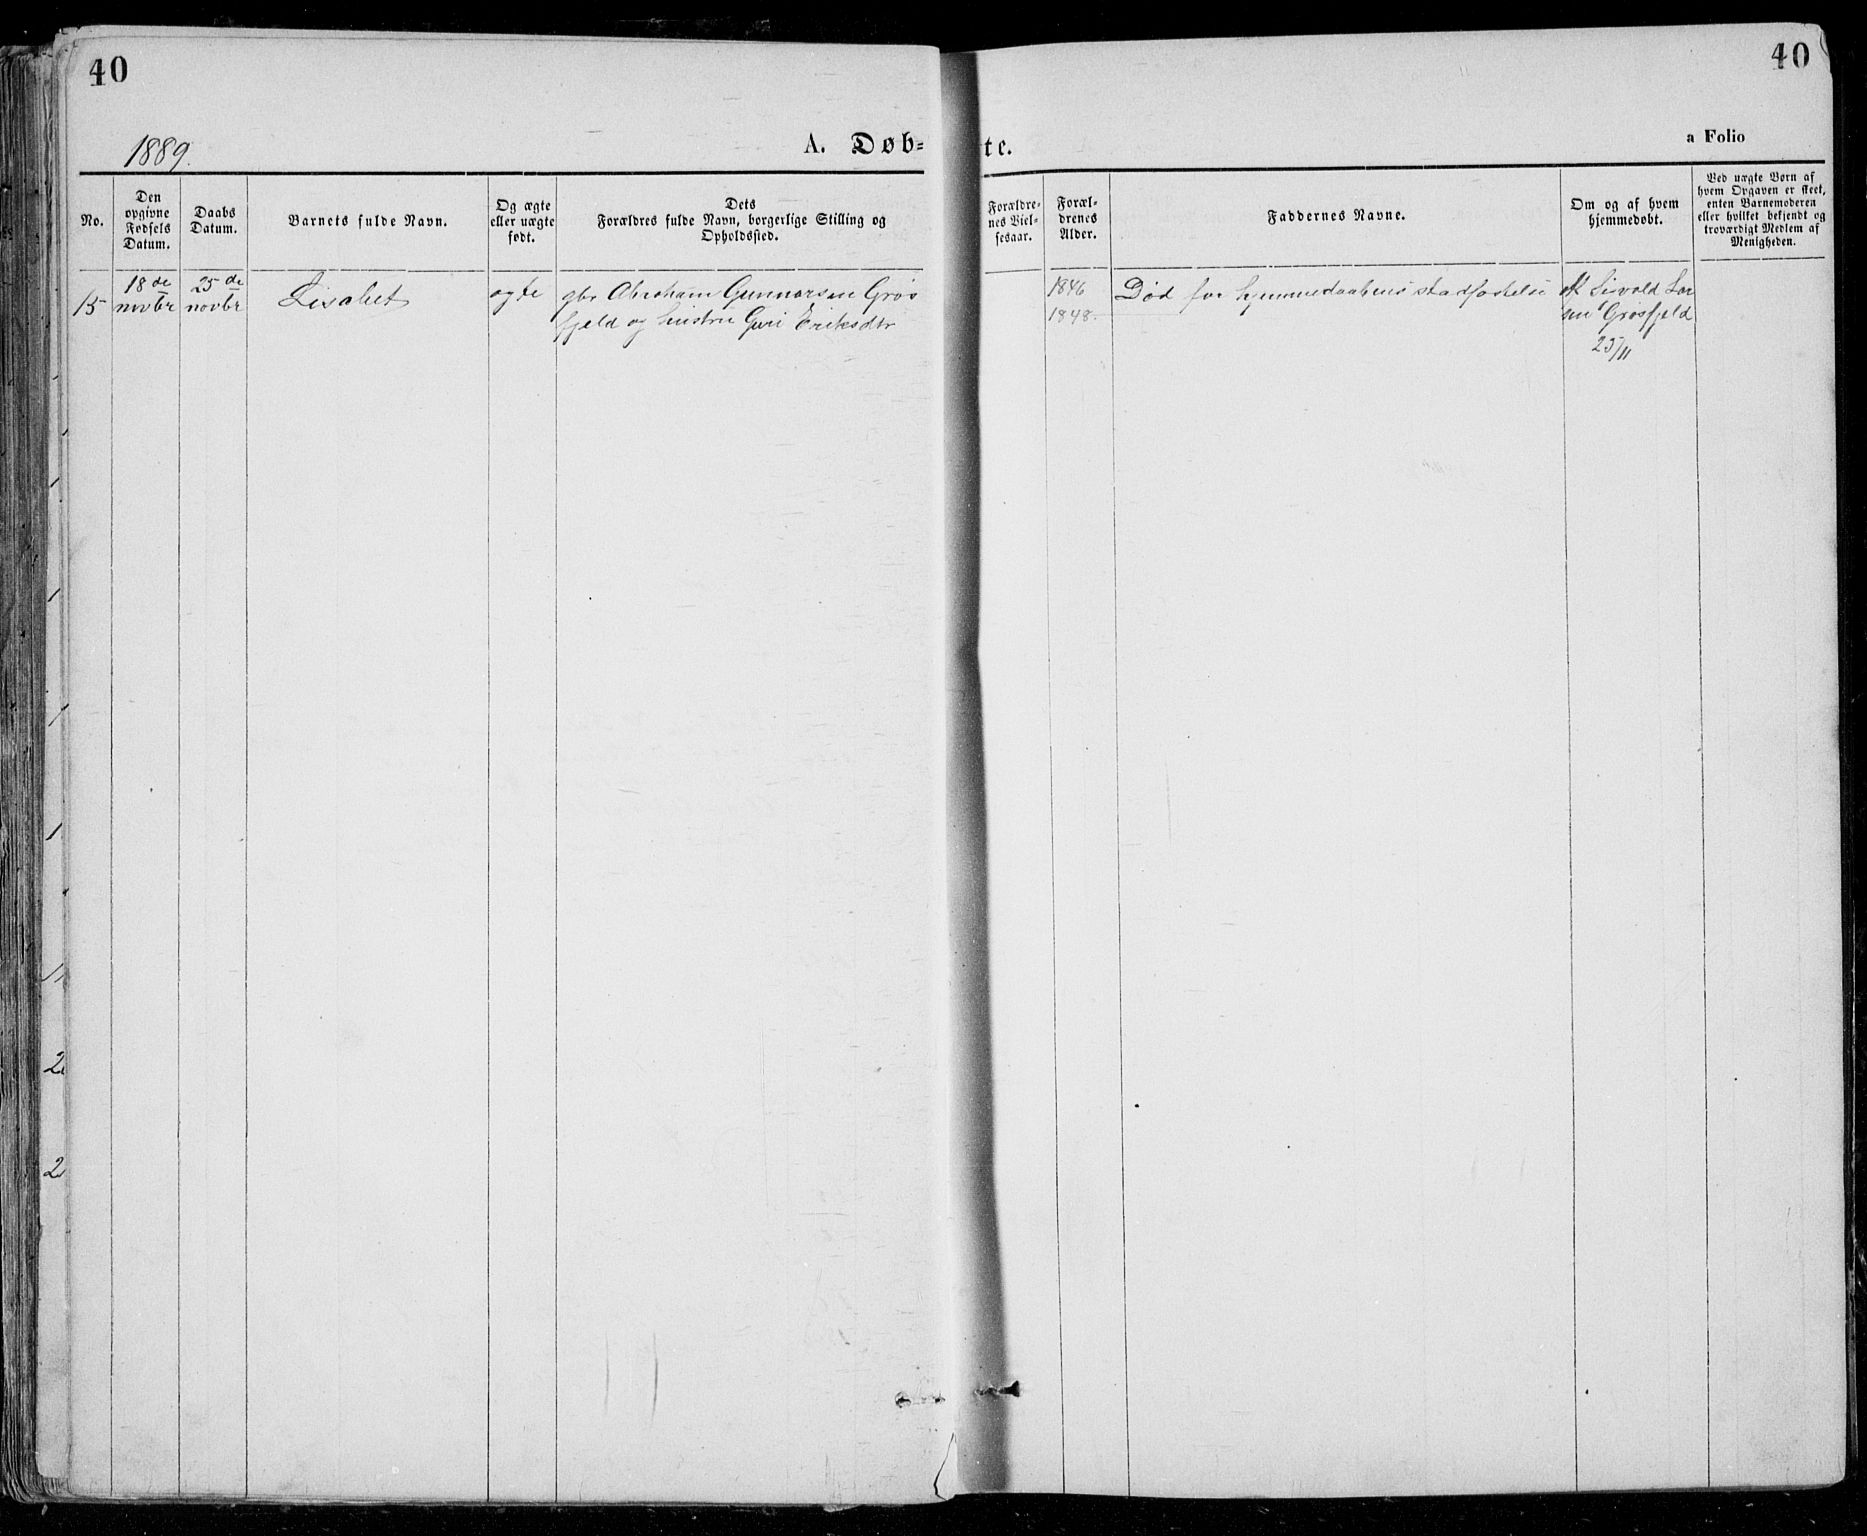 40
40
1889.
A. Døb-
te.
a Folio
No.
Den
opgivne
Fødsels
Datum.
Daabs
Datum.
Barnets fulde Navn.
Og ægte
eller uægte
født.
Dets
Forældres fulde Navn, borgerlige Stilling og
Opholdssted.
Forældre-
nes Viel-
sesaar.
Foræl-
drenes
Alder.
Faddernes Navne.
Om og af hvem
hjemmedøbt.
Ved uægte Børn af
hvem Opgaven er skeet,
enten Barnemoderen
eller hvilket bekjendt og
troværdigt Medlem af
Menigheden.
15
18de
novbr
25de
novbr
Lisabet
ægte
gbr Abraham Gunnarsen Grøs
fjeld og hustru Guri Eriksdtr
1846
1848.
Død før hjemmedaabens stadfæstelse
af Sivald Lar
sen Grøsfjeld
25/11